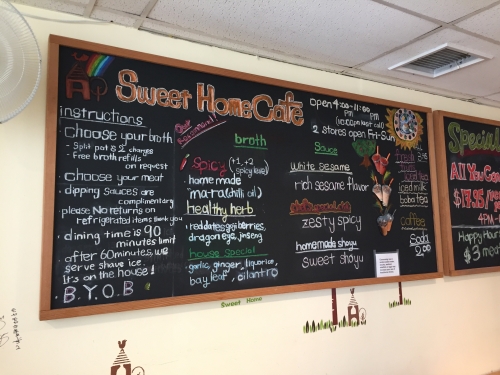 Sweet Home Cafe
open 4:00-11:00
PM PM
2 stores open Fri-Sun
instructions
- Choose your broth
- Split pot is 2 charges
- Free broth refills
on request
- choose your meat
- dipping sauces are
complimentary
- please No returns on
refrigerated items thank you
- dining time is 90
minutes limit
- after 60 minutes, we
serve shave ice.
It's on the house!
B.Y.O.B
broth
Spicy (+1, +2
spicy level)
- homemade
mala (chili oil)
Healthy herb
- red dates, goji berries,
dragon eye, jinseng
house special
- garlic, ginger, liquorice,
bay leaf, cilantro
Sauce
white sesame
rich sesame flavor
zesty spicy
homemade shoyu
sweet shoyu
iced milk
boba tea
coffee
Soda
2.00
Special
All You Can
$17.95
4PM
Happy Hour
$3 meat
Sweet Home